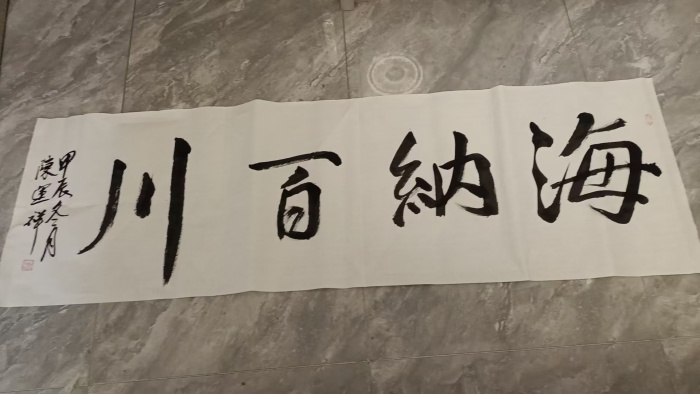 海納百川
甲辰冬月
陳運祥